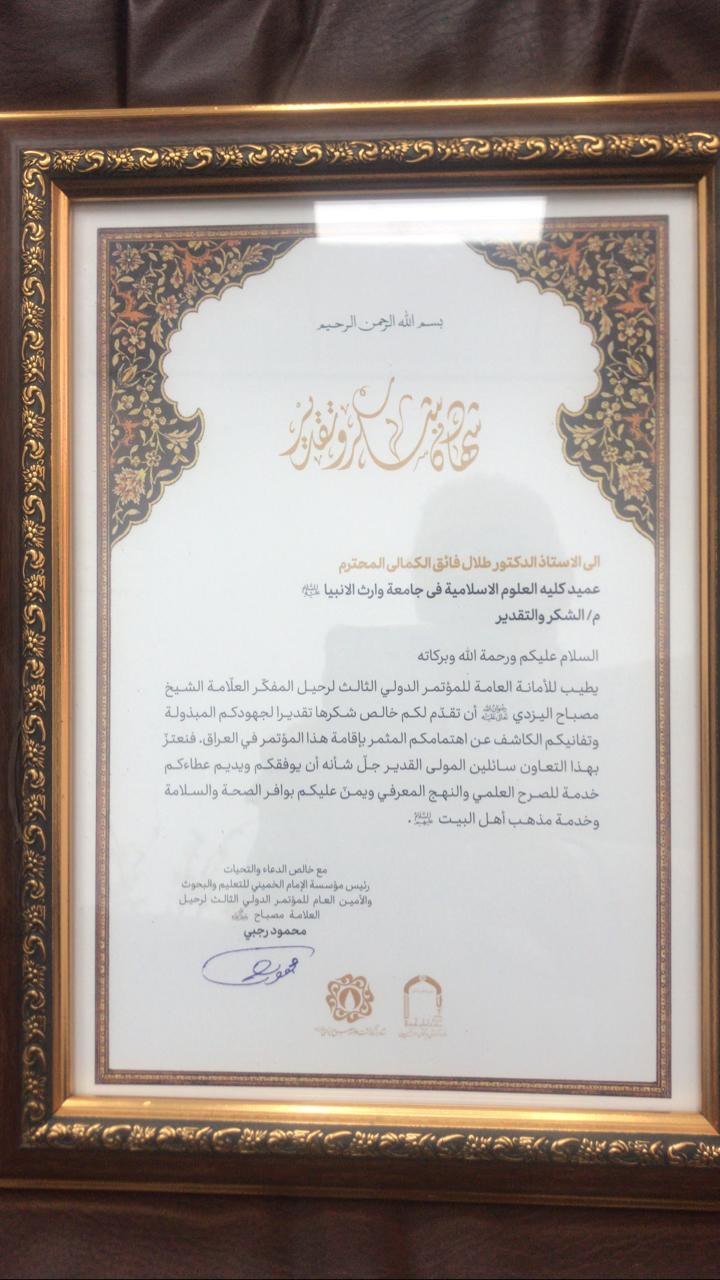 بسم الله الرحمن الرحيم
شهادة شكر وتقدير
الى الاستاذ الدكتور طلال فائق الكمالى المحترم
عميد كليه العلوم الاسلامية فى جامعة وارث الانبيا
م/ الشكر والتقدير
السلام عليكم ورحمة الله وبركاته
يطيب للأمانة العامة للمؤتمر الدولي الثالث لرحيل المفكّر العلّامة الشيخ
مصباح اليزدي أن تقدّم لكم خالص شكرها تقديرا لجهودكم المبذولة
وتفانيكم الكاشف عن اهتمامكم المثمر بإقامة هذا المؤتمر في العراق. فنعتزّ
بهذا التعاون سائلين المولى القدير جلّ شأنه أن يوفقكم ويديم عطاءكم
خدمة للصرح العلمي والنهج المعرفي ويمنّ عليكم بوافر الصحة والسلامة
وخدمة مذهب أهل البيت .
مع خالص الدعاء والتحيات
رئيس مؤسسة الإمام الخميني للتعليم والبحوث
والأمين العام للمؤتمر الدولي الثالث لرحيل
العلامة مصباح
محمود رجبي